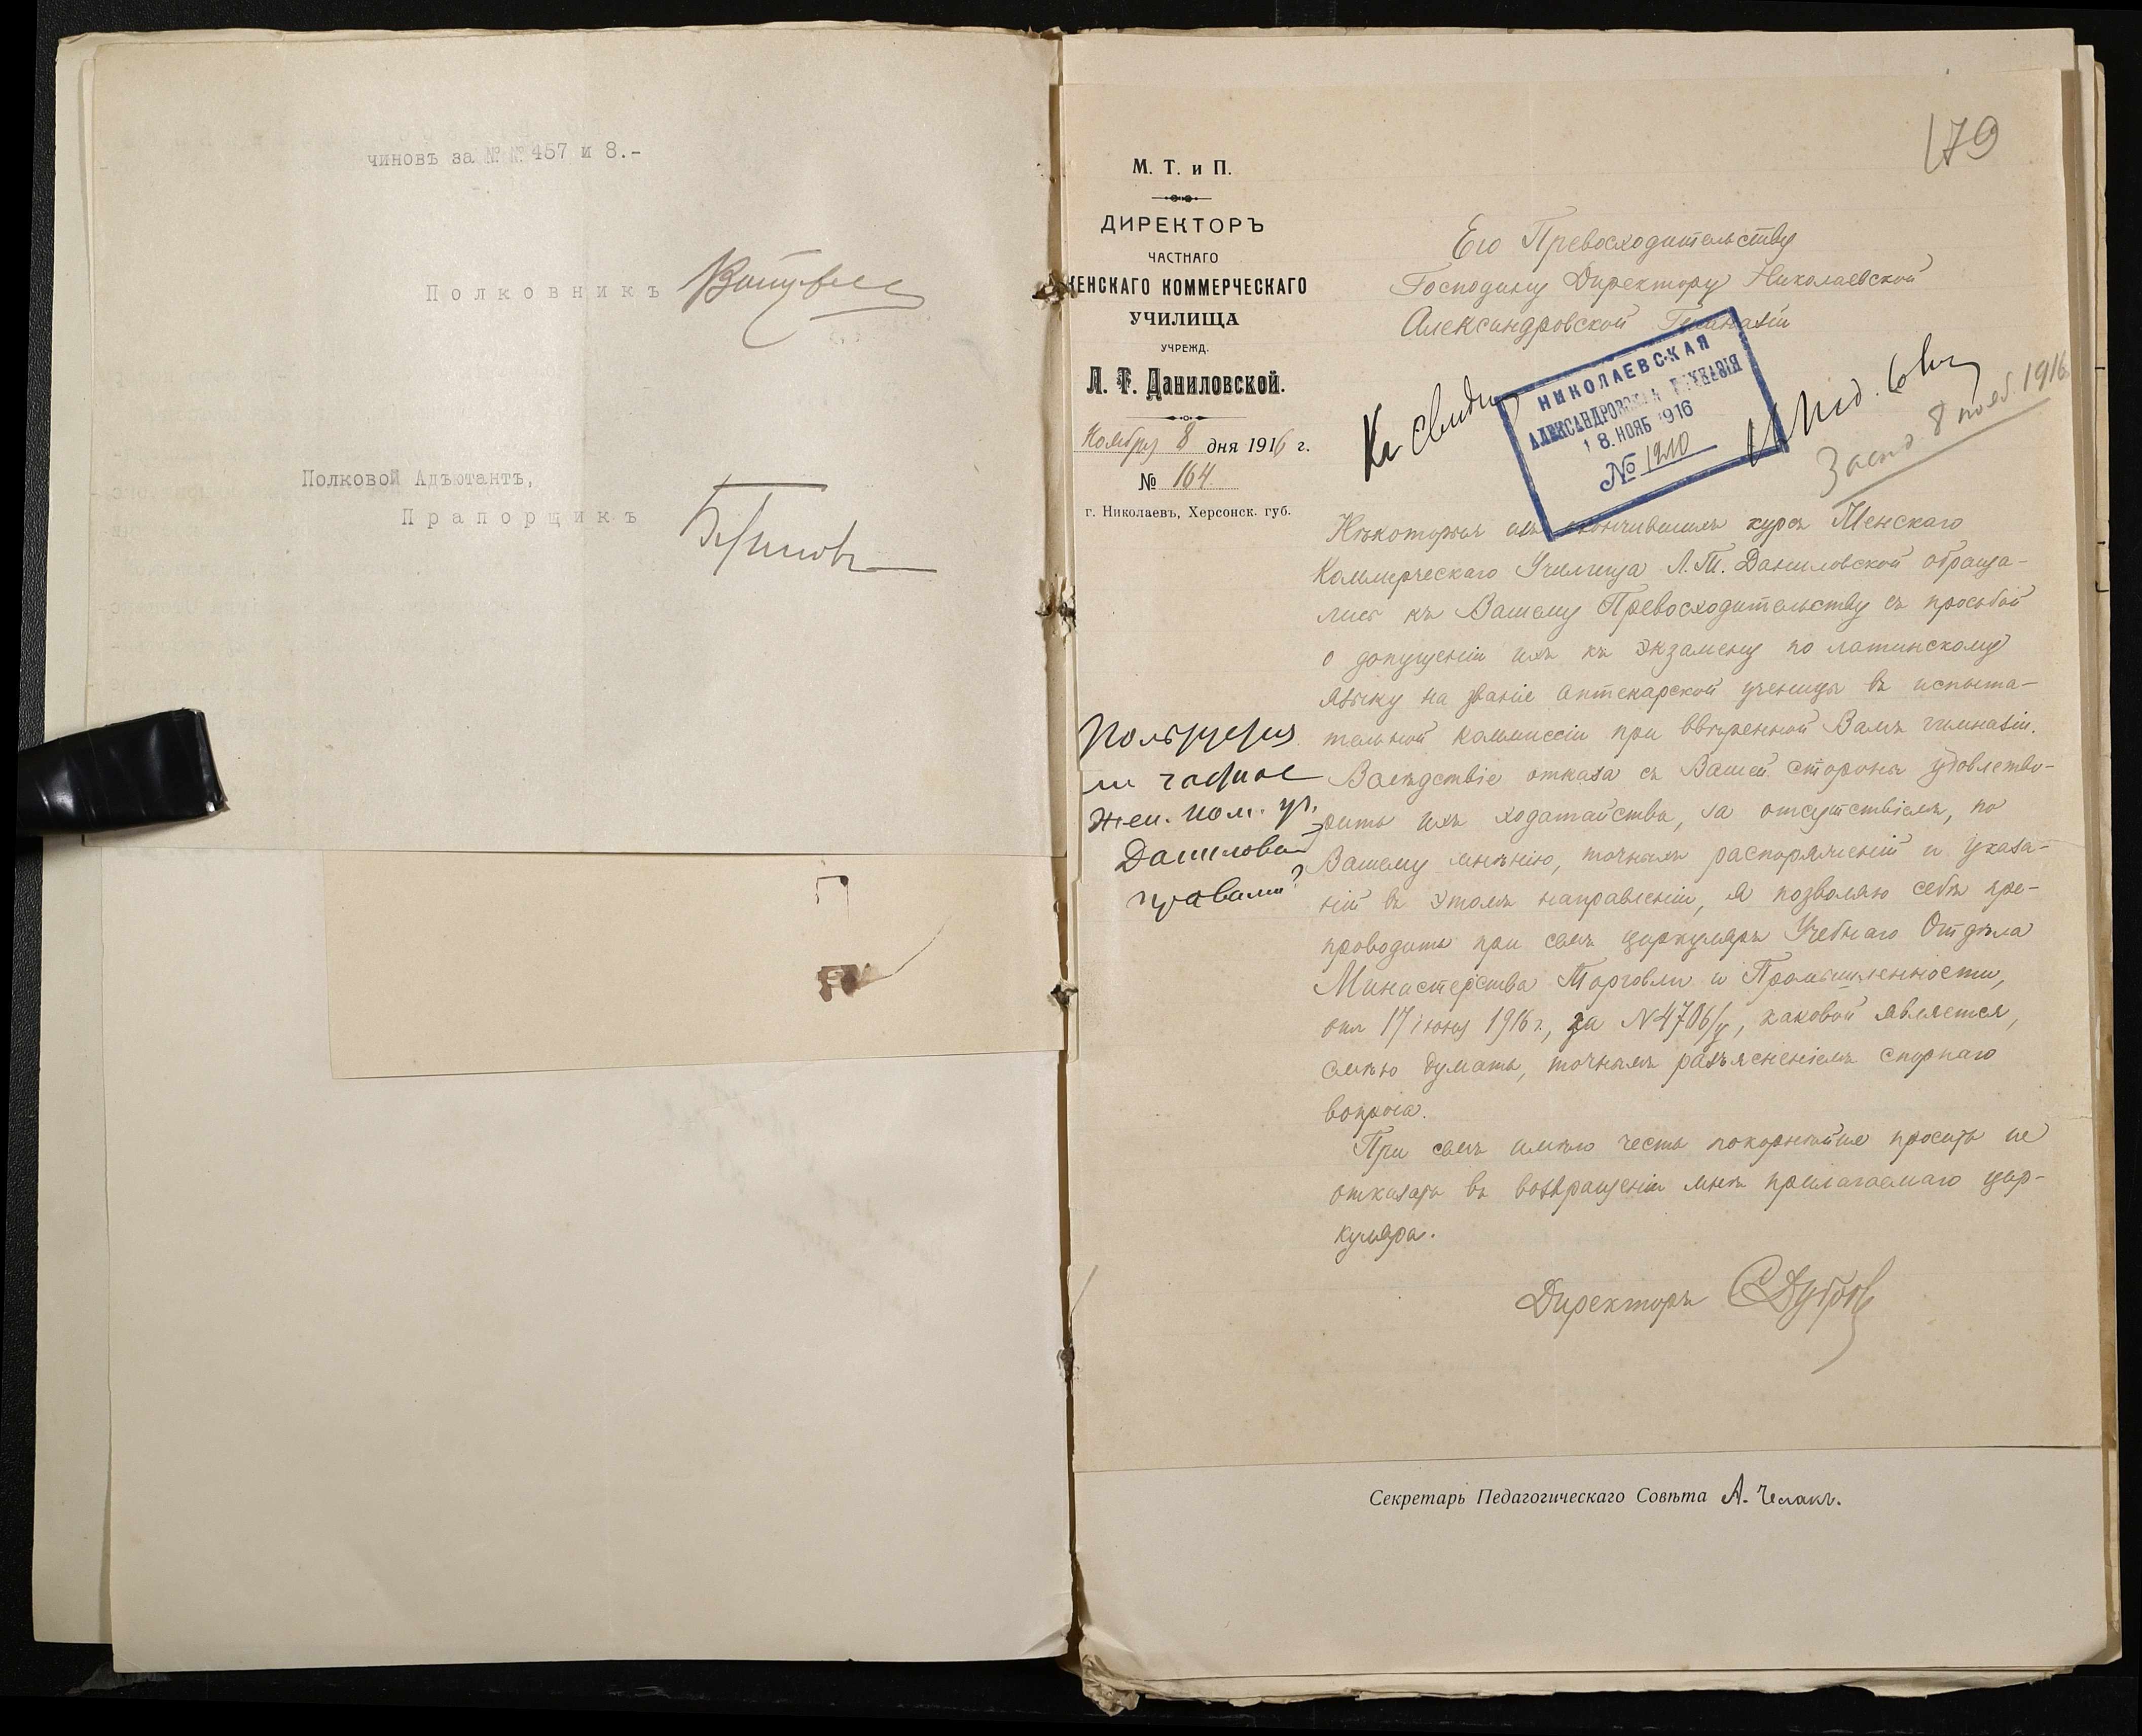 чиновъ за №№ 457 и 8.-
Полковникъ
Полковой Адъютантъ,
Прапорщикъ
179
М. Т. и П.
ДИРЕКТОРЪ
ЧАСТНАГО
ЖЕНСКАГО КОММЕРЧЕСКАГО
УЧИЛИЩА
УЧРЕЖД.
Л. Т. Даниловской.
Ноября 8 дня 1916 г.
№ 164
г. Николаевъ, Херсонск. губ.
Его Превосходительству
Господину Директору Николаевской
Александровской Гимназіи
НИКОЛАЕВСКАЯ
АЛЕКСАНДРОВСКАЯ ГИМНАЗІЯ
8. НОЯБ 1916
№ 1210
8 нояб. 1916
Нѣкоторыя изъ окончившихъ курсъ Женскаго
Коммерческаго Училища Л. Т. Даниловской обраща-
лись къ Вашему Превосходительству съ просьбой
о допущеніи ихъ къ экзамену по латинскому
языку на званіе аптекарской ученицы въ испыта-
тельной коммиссіи при ввѣренной Вамъ гимназіи.
Вслѣдствіе отказа съ Вашей стороны удовлетво-
рить ихъ ходатайства, за отсутствіемъ, по
Вашему мнѣнію, точныхъ распоряженій и указа-
ній въ этомъ направленіи, я позволяю себѣ пре-
проводить при семъ циркуляръ Учебнаго Отдѣла
Министерства Торговли и Промышленности,
отъ 17 іюня 1916 г., за N 4706/у, каковой является,
смѣю думать, точнымъ разъясненіемъ спорнаго
вопроса.
При семъ имѣю честь покорнѣйше просить не
отказать въ возвращеніи мнѣ прилагаемаго цир-
куляра.
Директоръ СДубров
Пользуется
ли частное
жен. ком. уч.
Даниловской
правами?
Секретарь Педагогическаго Совѣта А. Челакъ.